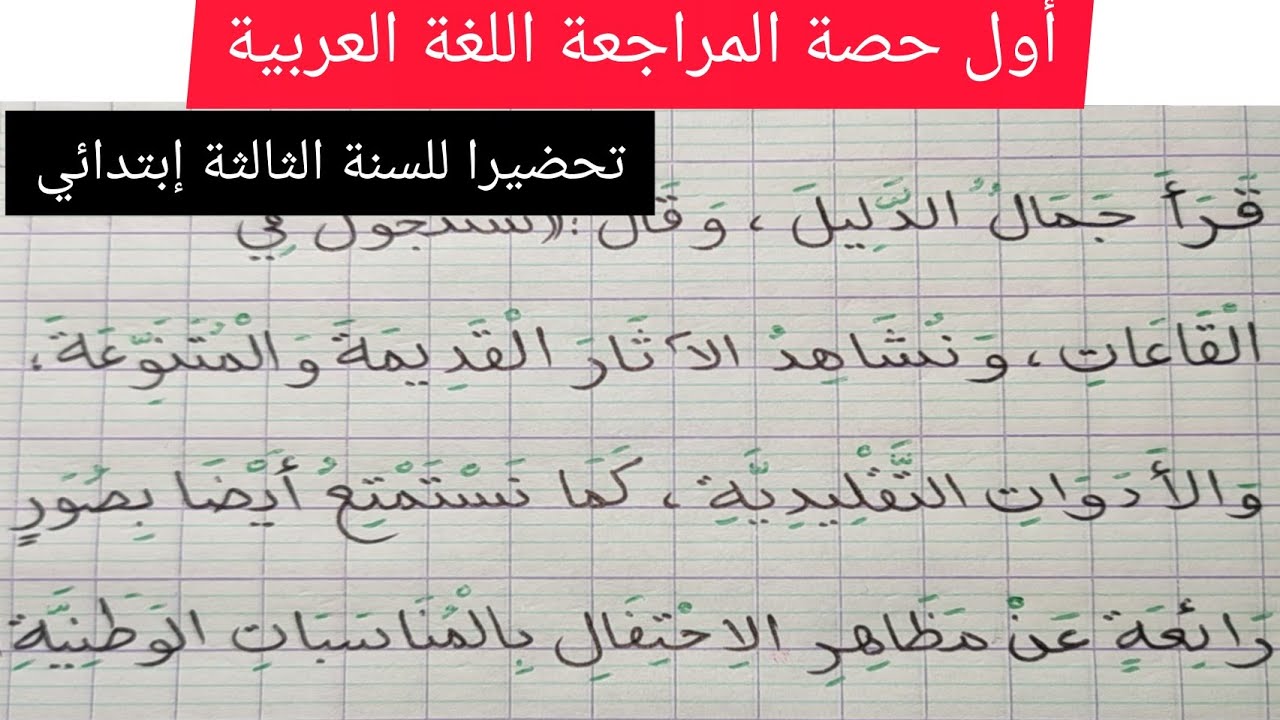 أول حصة المراجعة اللغة العربية
تحضيرا للسنة الثالثة إبتدائي
قَرَأَ جَمَالُ الدَّلِيلَ ، وَقَالَ :((سَنَتَجَوَّلُ فِي
الْقَاعَاتِ ، وَنُشَاهِدُ الآثَارَ الْقَدِيمَةَ وَالْمُتَنَوِّعَةَ ،
وَالأَدَوَاتِ التَّقْلِيدِيَّةِ ، كَمَا نَسْتَمْتِعُ أَيْضَا بِصُوَرٍ
رَائِعَةٍ عَنْ مَظَاهِرِ الاِحْتِفَالِ بِالْمُنَاسَبَاتِ الوَطَنِيَّةِ.